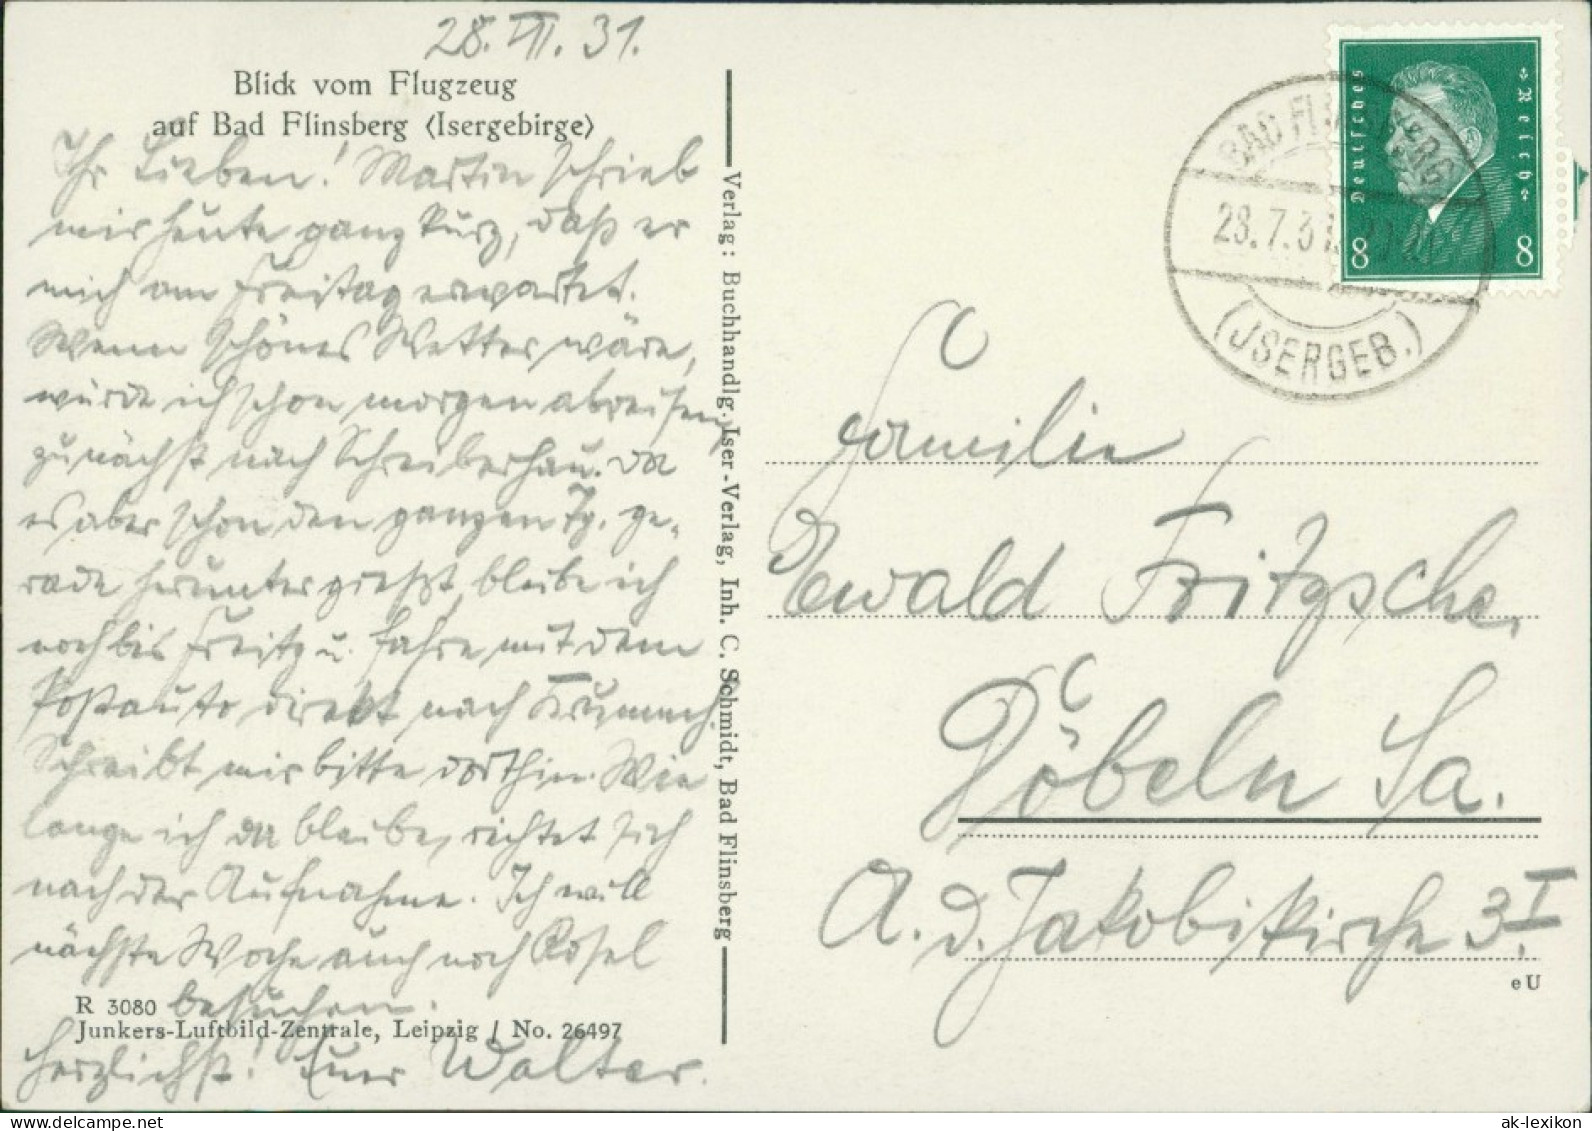 28. VII. 31.
Blick vom Flugzeug
auf Bad Flinsberg (Isergebirge)
Ihr Lieben! Martin schrieb
mir heute ganz kurz, daß er
mich am Freitag erwartet.
Wenn schönes Wetter wäre,
würde ich schon morgen abreisen,
zunächst nach Schreiberhau. Da
es aber schon den ganzen Tg. ge-
rade heruntergießt, bleibe ich
noch bis Freitg u. fahre mit dem
Postauto direkt nach Krummh.
Schreibt mir bitte dorthin. Wie
lange ich da bleibe, richtet sich
nach der Aufnahme. Ich will
nächste Woche auch noch Rosel
besuchen.
R 3080
Junkers-Luftbild-Zentrale, Leipzig / No. 26497
Herzlichst! Euer Walter.
Verlag: Buchhandlg. Iser-Verlag, Inh. C. Schmidt, Bad Flinsberg
Deutsches Reich
8 8
BAD FLINSBERG
28.7.31
(ISERGEB.)
Familie
Ewald Fritzsche,
Döbeln Sa.
A. d. Jakobikirche 3 I.
e U
ak-lexikon